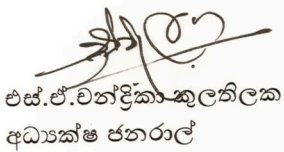 එස්.ඒ.චන්ද්‍රිකා කුලතිලක
අධ්‍යක්ෂ ජනරාල්